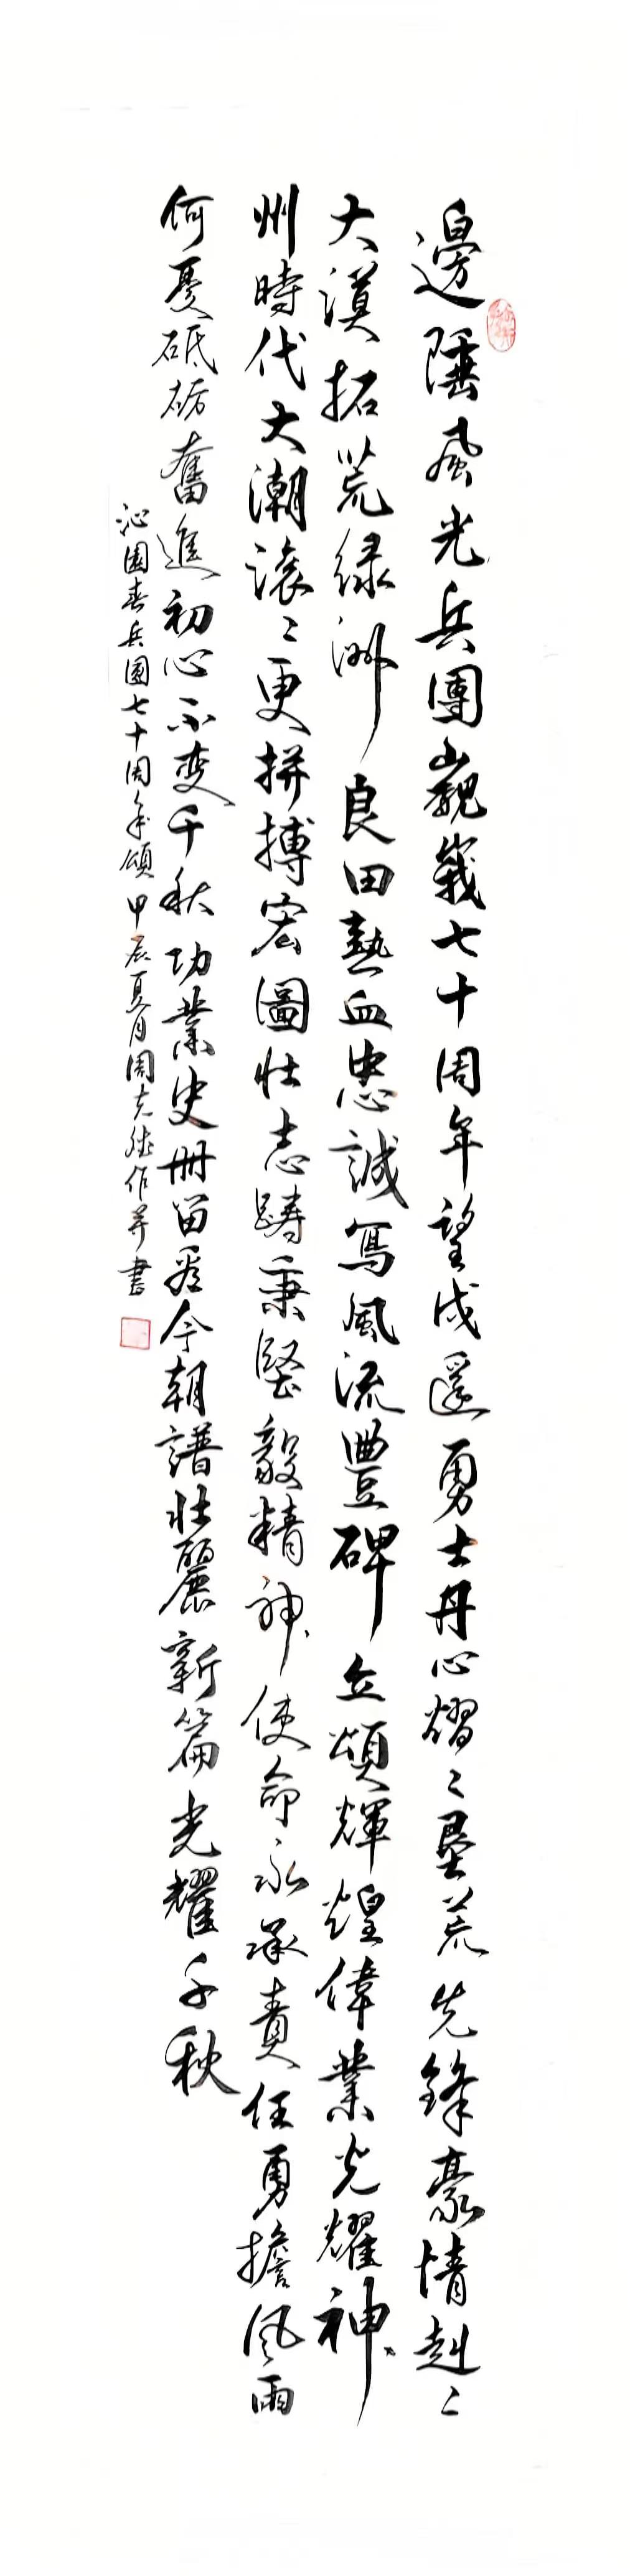 邊陲風光兵團巍峩七十周年望戍邊勇士丹心熠〻墾荒先鋒豪情赳〻
大漠拓荒绿洲良田熱血忠誠寫風流豐碑立頌輝煌偉業光耀神
州時代大潮滚〻更拼搏宏圖壮志踌秉堅毅精神使命永承責任勇擔风雨
何憂砥砺奮進初心不变千秋功業史册留看今朝譜壮麗新篇光耀千秋
沁園春兵團七十周年頌甲辰夏月周克作并書